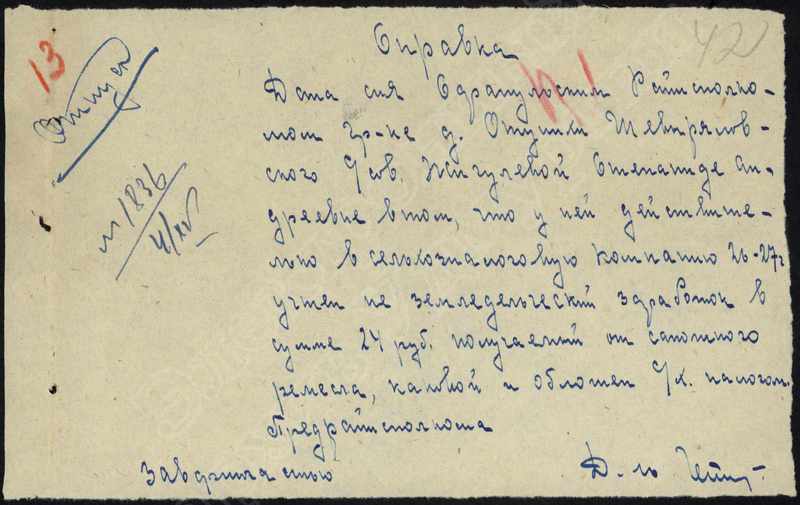 13
42
Отпуск
№ 1836
4/XII
Справка
Дана сия Сарапульским Райисполко-
мом гр-ке д. Отушки Шевыряловс-
ского с/сов. Жигулевой Степаниде Ан-
дреевне в том, что у ней действите-
льно в сельхозналоговую компанию 26-27 г
учтен не земледельческий заработок в
сумме 24 руб. получаемый от сапожного
ремесла, каковой и обложен с/х. налогом.
Предрайисполкома
Завфинчастью
Д. м